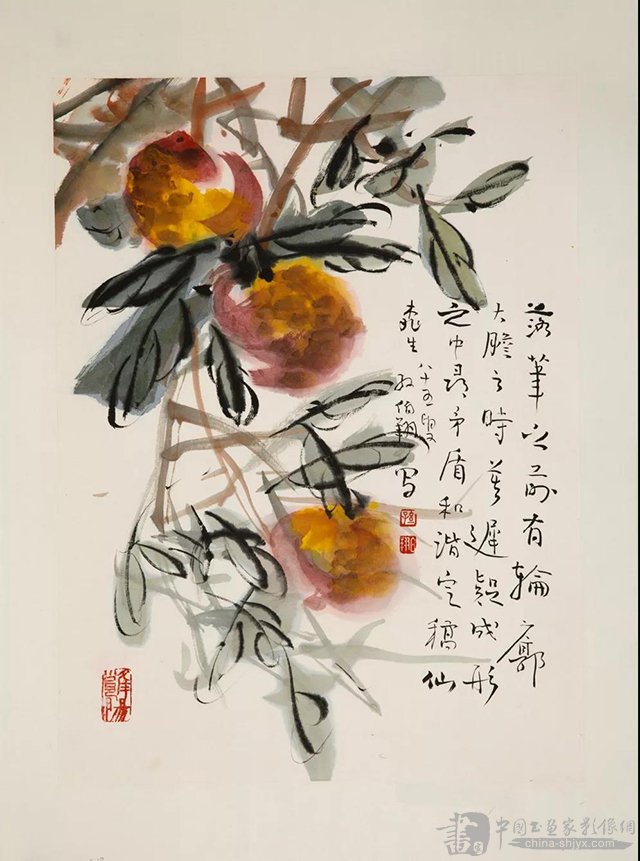 落筆之前有輪廓
大膽之時莫遲疑成形
之中尋矛盾和諧定稿仙
八十五叟
孙伯翔写
中國书画家影像網
china-shjyx.com